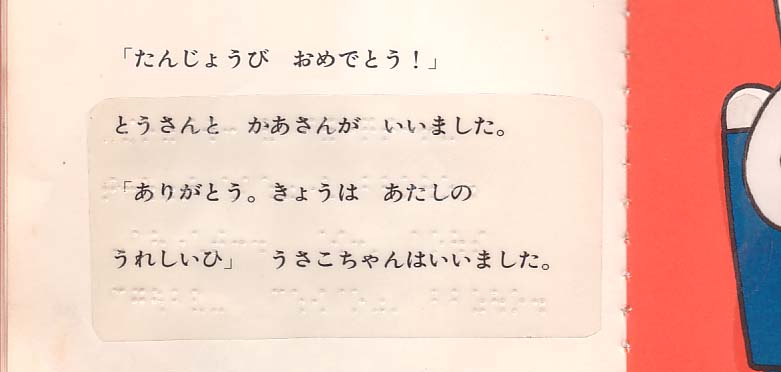 「たんじょうび　おめでとう！」
とうさんと　かあさんが　いいました。
「ありがとう。きょうは　あたしの
うれしいひ」　うさこちゃんはいいました。